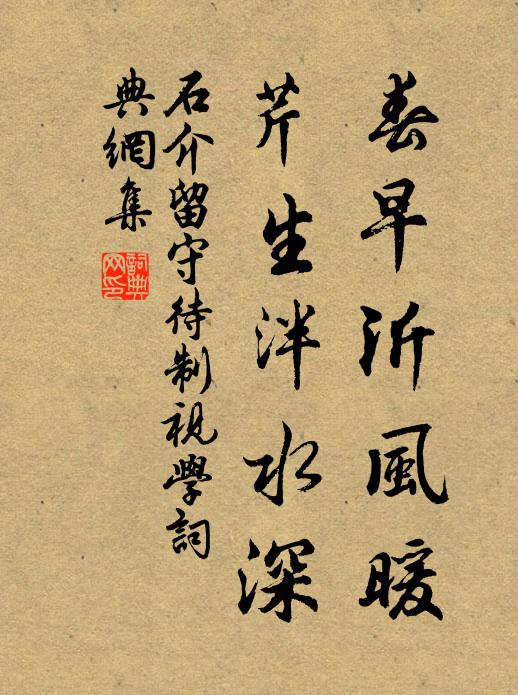 春早沂風暖
芹生泮水深
石介留守待制視學詞
典網集
詞典網印